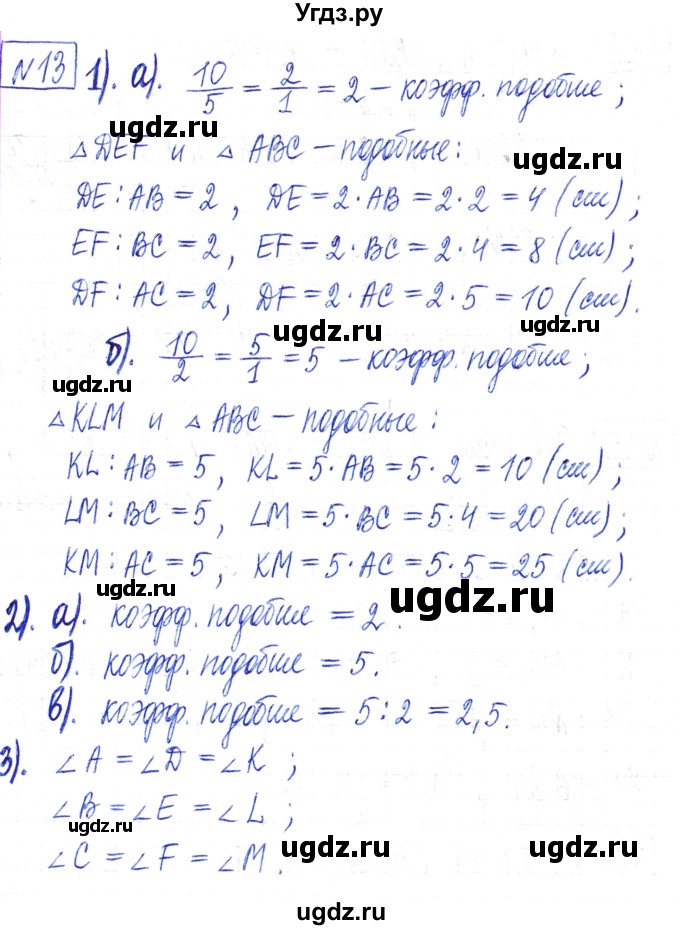 Угдз.ру
№13 1). а). 10/5 = 2/1 = 2 – коэфф. подобия ;
ugdz.ru
ugdz.ru
△ DEF и △ ABC – подобные :
ugdz.ru
DE : AB = 2 , DE = 2 · AB = 2 · 2 = 4 (см) ;
EF : BC = 2 , EF = 2 · BC = 2 · 4 = 8 (см) ;
DF : AC = 2 , DF = 2 · AC = 2 · 5 = 10 (см) .
ugdz.ru
ugdz.ru
б). 10/2 = 5/1 = 5 – коэфф. подобия ;
ugdz.ru
ugdz.ru
△ KLM и △ ABC – подобные :
KL : AB = 5 , KL = 5 · AB = 5 · 2 = 10 (см) ;
ugdz.ru
LM : BC = 5 , LM = 5 · BC = 5 · 4 = 20 (см) ;
ugdz.ru
ugdz.ru
KM : AC = 5 , KM = 5 · AC = 5 · 5 = 25 (см) .
ugdz.ru
2). а). коэфф. подобия = 2 .
б). коэфф. подобия = 5.
в). коэфф. подобия = 5 : 2 = 2,5.
ugdz.ru
3). ∠A = ∠D = ∠K ;
∠B = ∠E = ∠L ;
ugdz.ru
∠C = ∠F = ∠M .
ugdz.ru
ugdz.ru